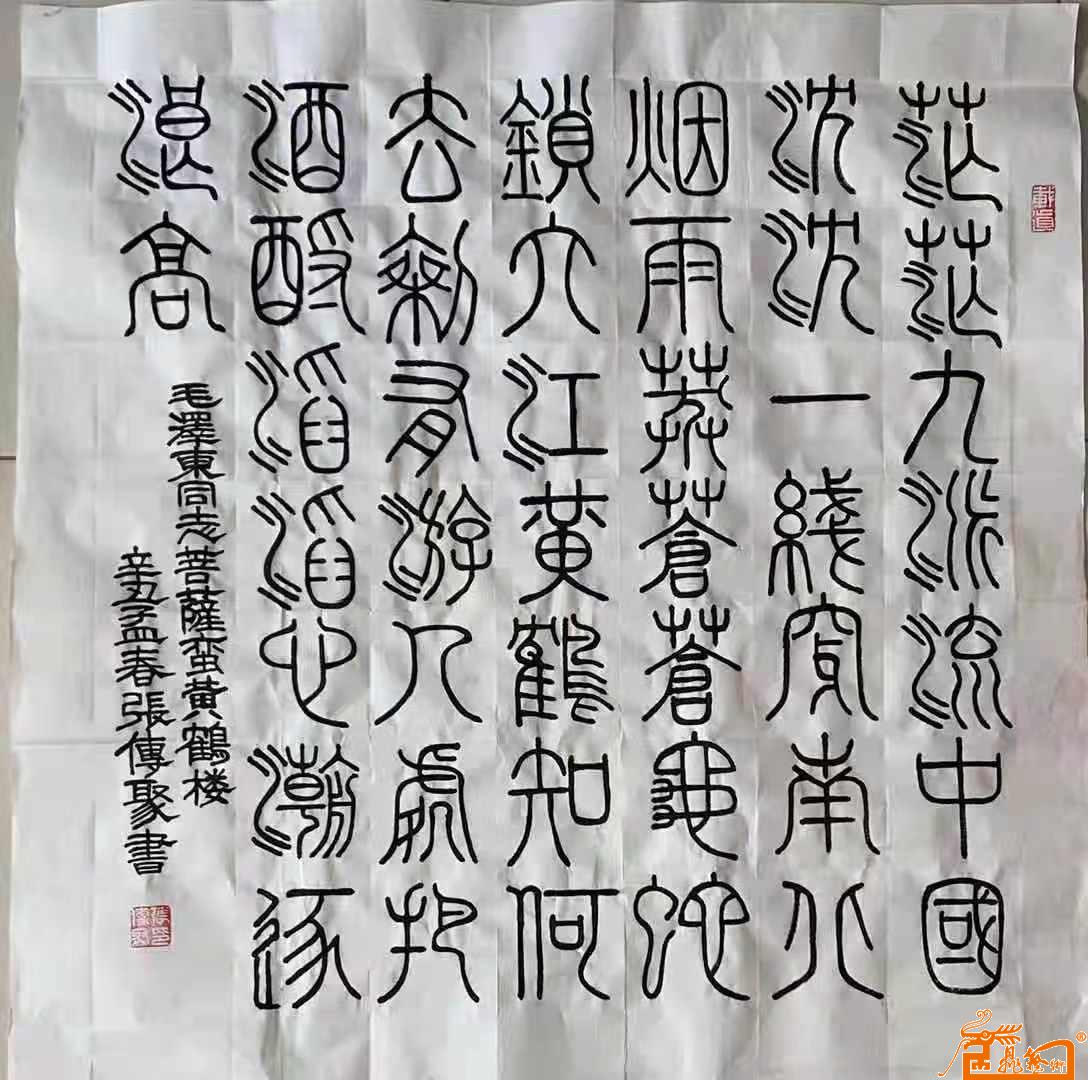 茫茫九派流中國
沈沈一綫穿南北
烟雨莽蒼蒼龜蛇
鎖大江黃鶴知何
去剩有游人處把
酒酹滔滔心潮逐
浪高
毛澤東同志菩薩蛮黄鶴楼
辛丑孟春張傳聚書
載道